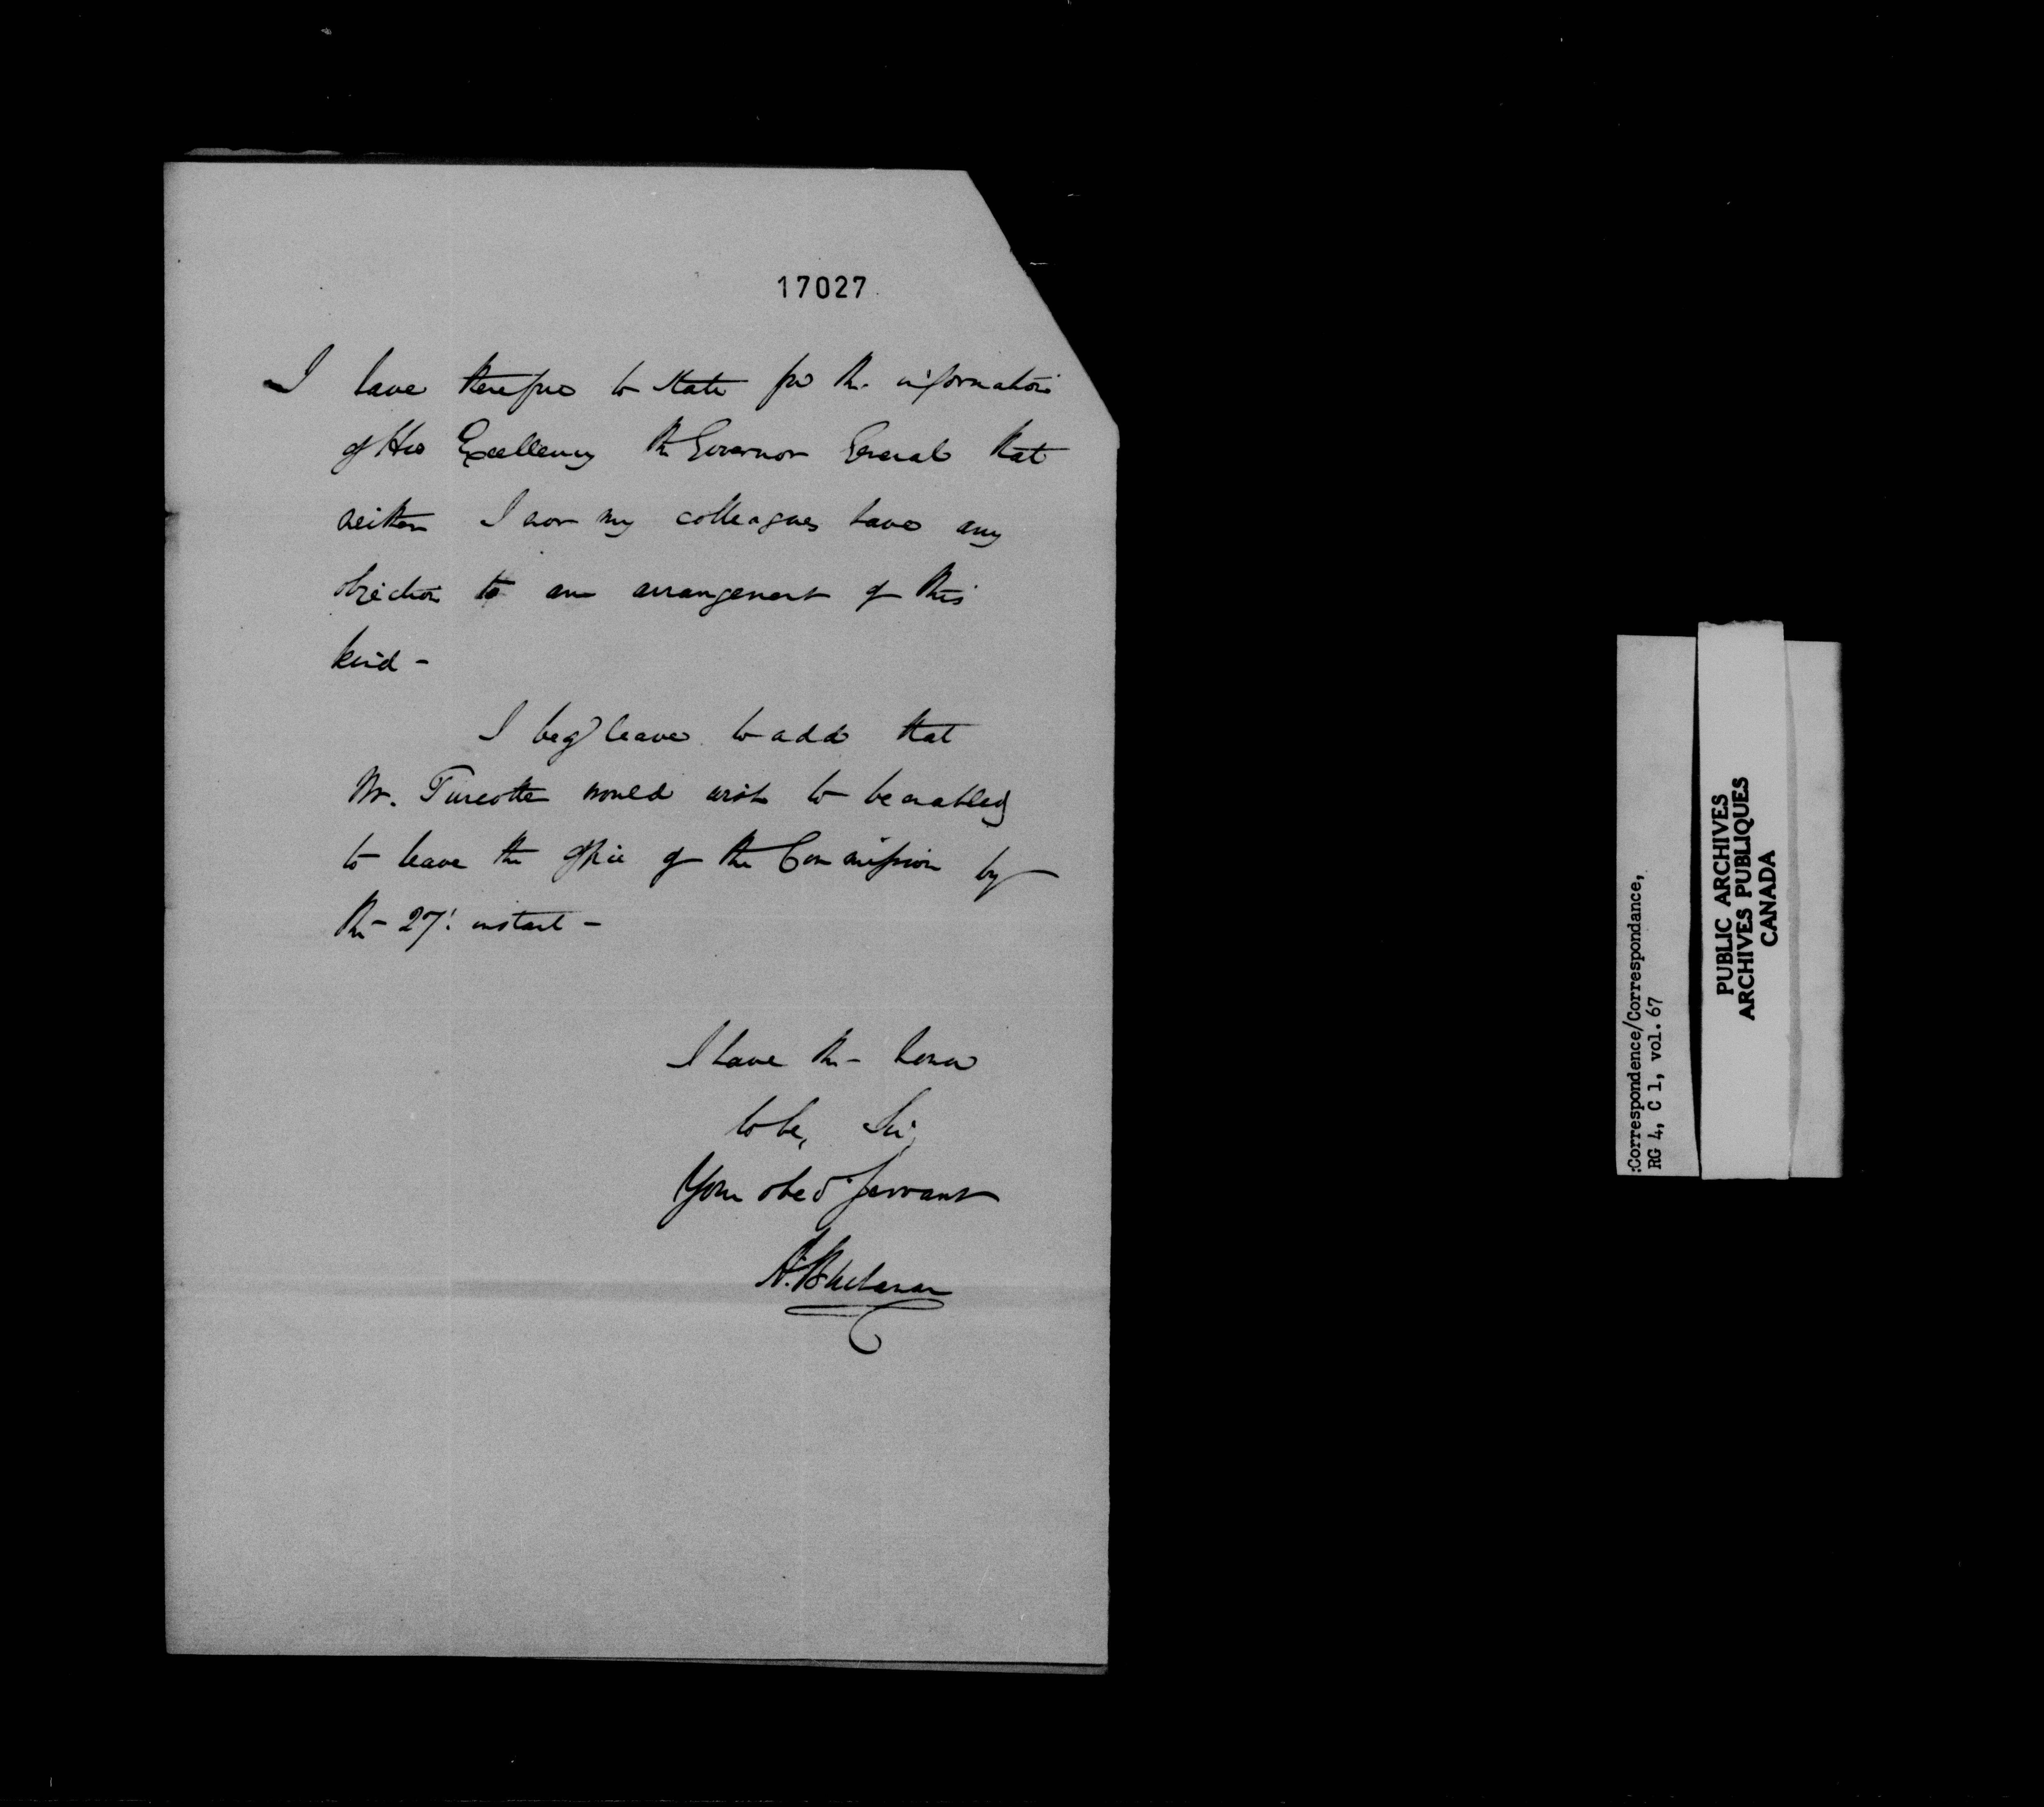 17027
I have therefore to state for the information
of His Excellency the Governor General that
neither I nor my colleagues have any
objection to an arrangement of this
kind -
I beg leave to add that
Mr. Turcotte would wish to be enabled
to leave the office of the Commission by
the 27t. instant -
I have the - honor
to be, Sir,
Your obedt Servant
A. Buchanan
:Correspondence/Correspondance,
RG 4, C 1, vol. 67
PUBLIC ARCHIVES
ARCHIVES PUBLIQUES
CANADA